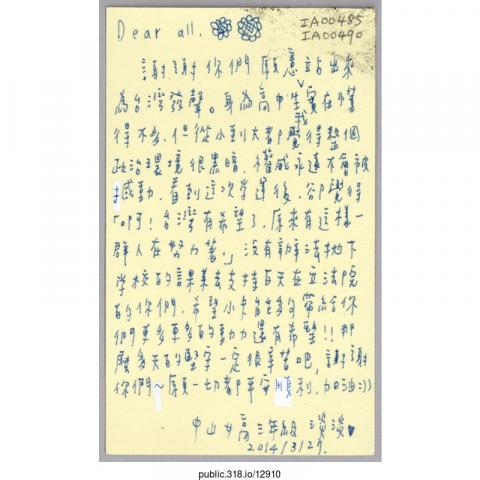 Dear all.
IA00485
IA00490
謝謝你們願意站出來
為台灣發聲。身為高中生我實在懂
得不多,但從小到大都覺得整個
政治環境很黑暗,權威永遠不會被
撼動,看到這次學運後,卻覺得
「啊!台灣有希望了,原來有這樣一
群人在努力著」,沒有辦法拋下
學校的課業去支持每天在立法院
的你們,希望小卡能夠帶給你
們更多更多的動力還有希望!!那
麼多天的堅守一定很辛苦吧,謝謝
你們~願一切都平安順利,加油:))
中山女高三年級 淡淡♥
2014/3/27.
public.318.io/12910